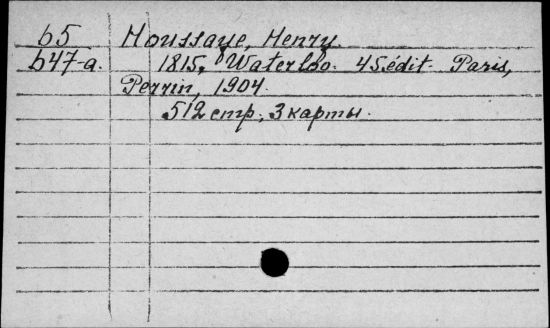 b5 Houssaye, Henry.
b47-a. 1815, Waterloo. 45 édit. Paris,
Perrin, 1904.
512 стр., 3 карты.